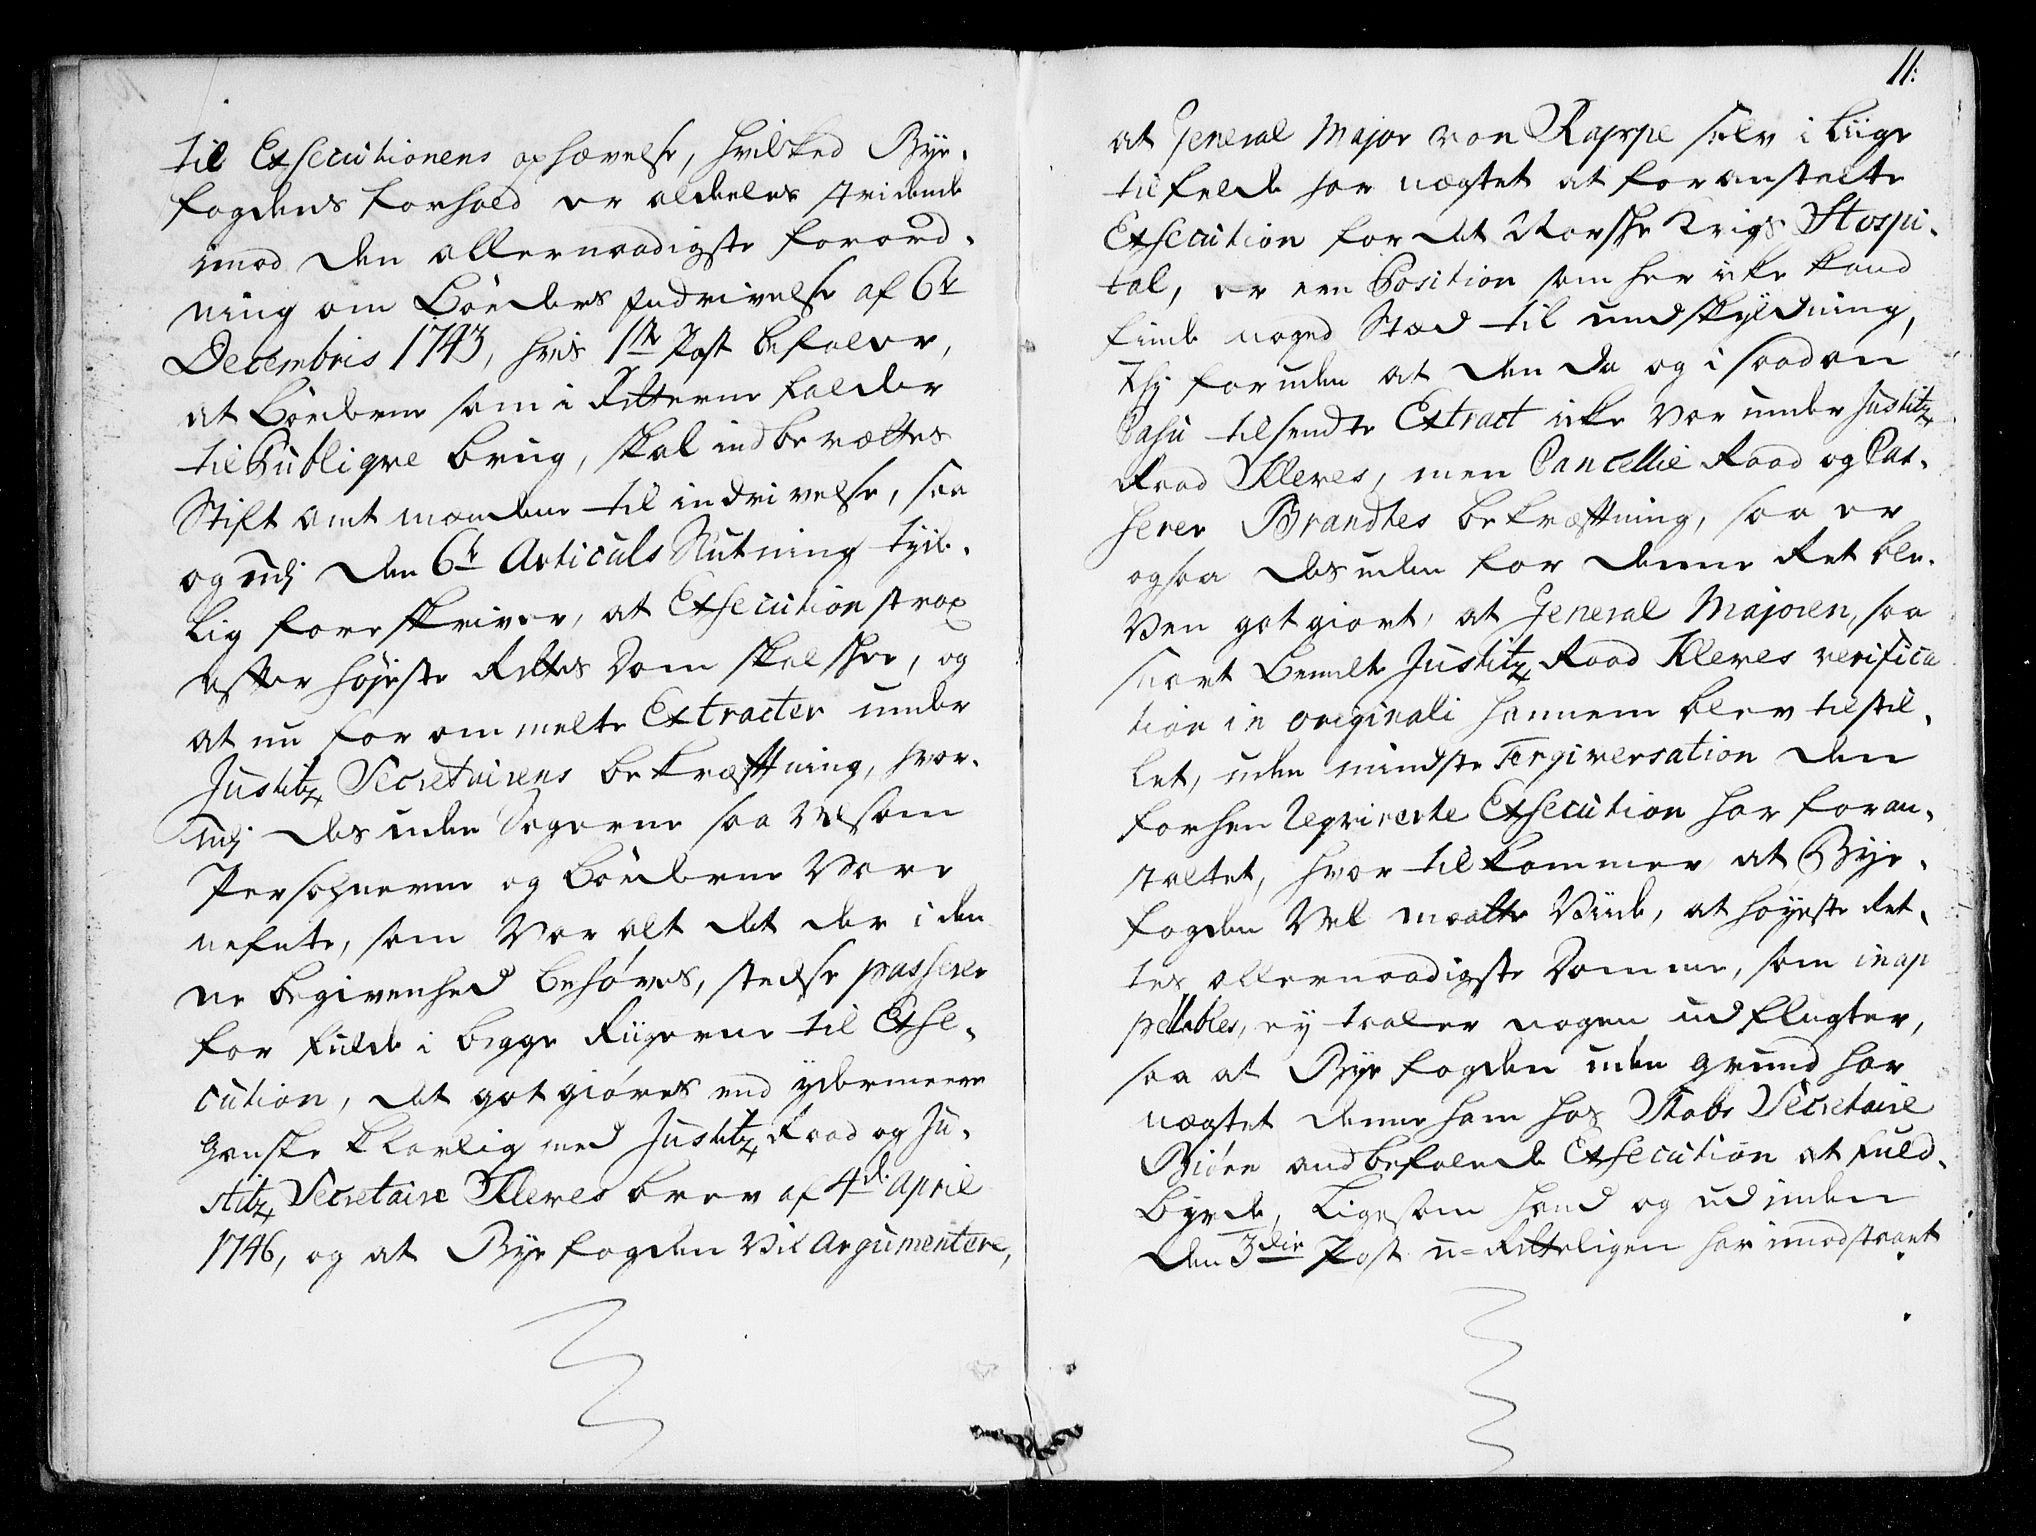 til Exsecutionens ophævelse, hvilked Bÿe-
fogdens forhold er aldeeles stridende
imod den allernaadigste forord-
ning om Bøeders Inddrivelse af 6te
Decembris 1743, hvis 1ste Post befaler,
at Bøederne som i Retterne falder
til Publiqve brug, skal indberættes
Stift amtmændene til inddrivelse, saa
og udj den 6te Articuls Slutning tÿde-
lig foreskriver, at Exsecution strax
efter høÿeste Rettes Dom skal skee, og
at nu forommelte Extracter under
Justitz Secretairens bekræftning, hvor-
udj desuden Sagerne saavelsom
Persohnerne og Bøederne Vare
nefnte, som Var alt det der i den-
ne begivenhed behøves, stedse passerer
for fulde i begge Riigerne til Exse-
cution, det gotgiøres end ÿdermeere
Ganske klarlig med Justitz Raad og Ju-
stitz Secretaire Kleves brev af 4de April
1746, og at Bÿefogden Vil Argumentere,
11:
at General Major von Kappe selv i Liige
tilfelde har nægtet at foranstalte
Exsecution for det Norske Krigs Hospi-
tal, er een Position som her icke kand
finde noged Stæd til undskÿldning,
thj foruden at den da og i saadan
Casu tilsendte Extract icke Var under Justitz
Raad Kleves, men Cancellie Raad og Cas-
serer Brandtes bekræftning, saa er
ogsaa desuden for denne Ret ble-
Ven gotgiort, at General Majoren, saa
snart bemelte Justitz Raad Kleves verifica
tion in originali hannem blev tilstil-
let, uden mindste Tergiversation den
forhen Reqvirerte Exsecution har foran-
staltet, hvortil kommer at Bÿe-
fogden Vel maatte Viide, at høÿeste Ret-
tes allernaadigste Domme, som inap
pellables, eÿ taaler nogen udflugter,
saa at Bÿefogden uden grund har
nægtet denne ham hos Stabs Secretaire
Biørn andbefalede Exsecution at fuld-
bÿrde, Ligesom hand og ud inden
den 3die Post u-Retteligen har imodstaaet